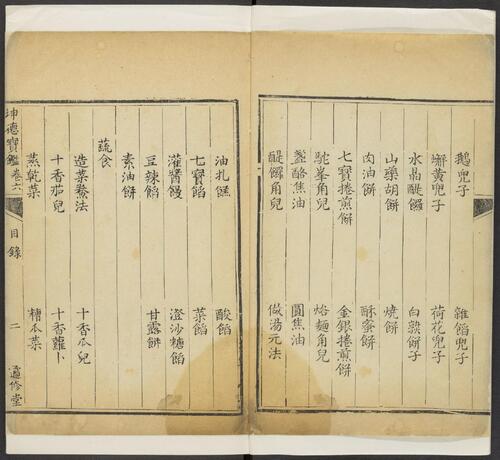 鵝兜子 雜餡兜子
蠏黄兜子 荷花兜子
水晶䭔饠 白熟餅子
山藥胡餅 燒餅
肉油餅 酥蜜餅
七寶捲煎餅 金銀捲煎餅
駝峯角兒 烙麵角兒
 酪焦油 圓焦油
饠角兒 做湯元法
油扎 酸餡
七寳餡 菜餡
灌醬饅 澄沙糖餡
豆辣餡 甘露餅
素油餅
蔬食
造菜鮝法 十香瓜兒
十香茄兒 十香蘿卜
蒸乾菜 糟瓜菜
坤德寶鑑 卷六 目錄 二 修堂